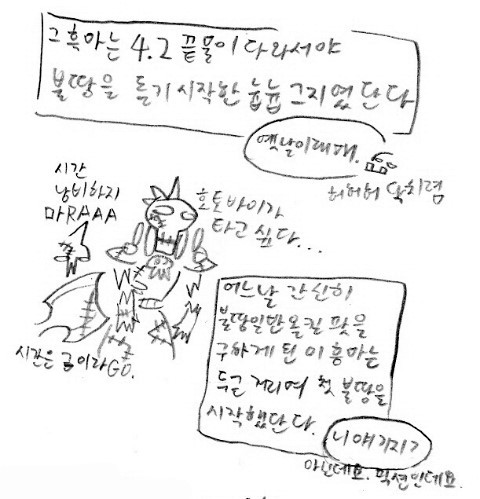 그 흑마는 4.2 끝물이 다라서야
불땅을 돌기 시작한 늅늅 그지였단다
옛날이래매.
허허허 닥치렴
시간
낭비하지
마RAAA
호토바이가
타고 싶다...
시간은 금이라GO.
어느날 간신히
불땅일반올킬 팟을
구하게 된 이 흥마는
두근 거리며 첫 불땅을
시작했단다.
니 얘기지?
아닌데요. 픽션인데요.